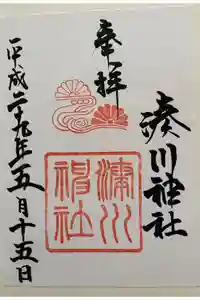 奉拝
湊川神社
湊川神社
平成二十九年五月十五日